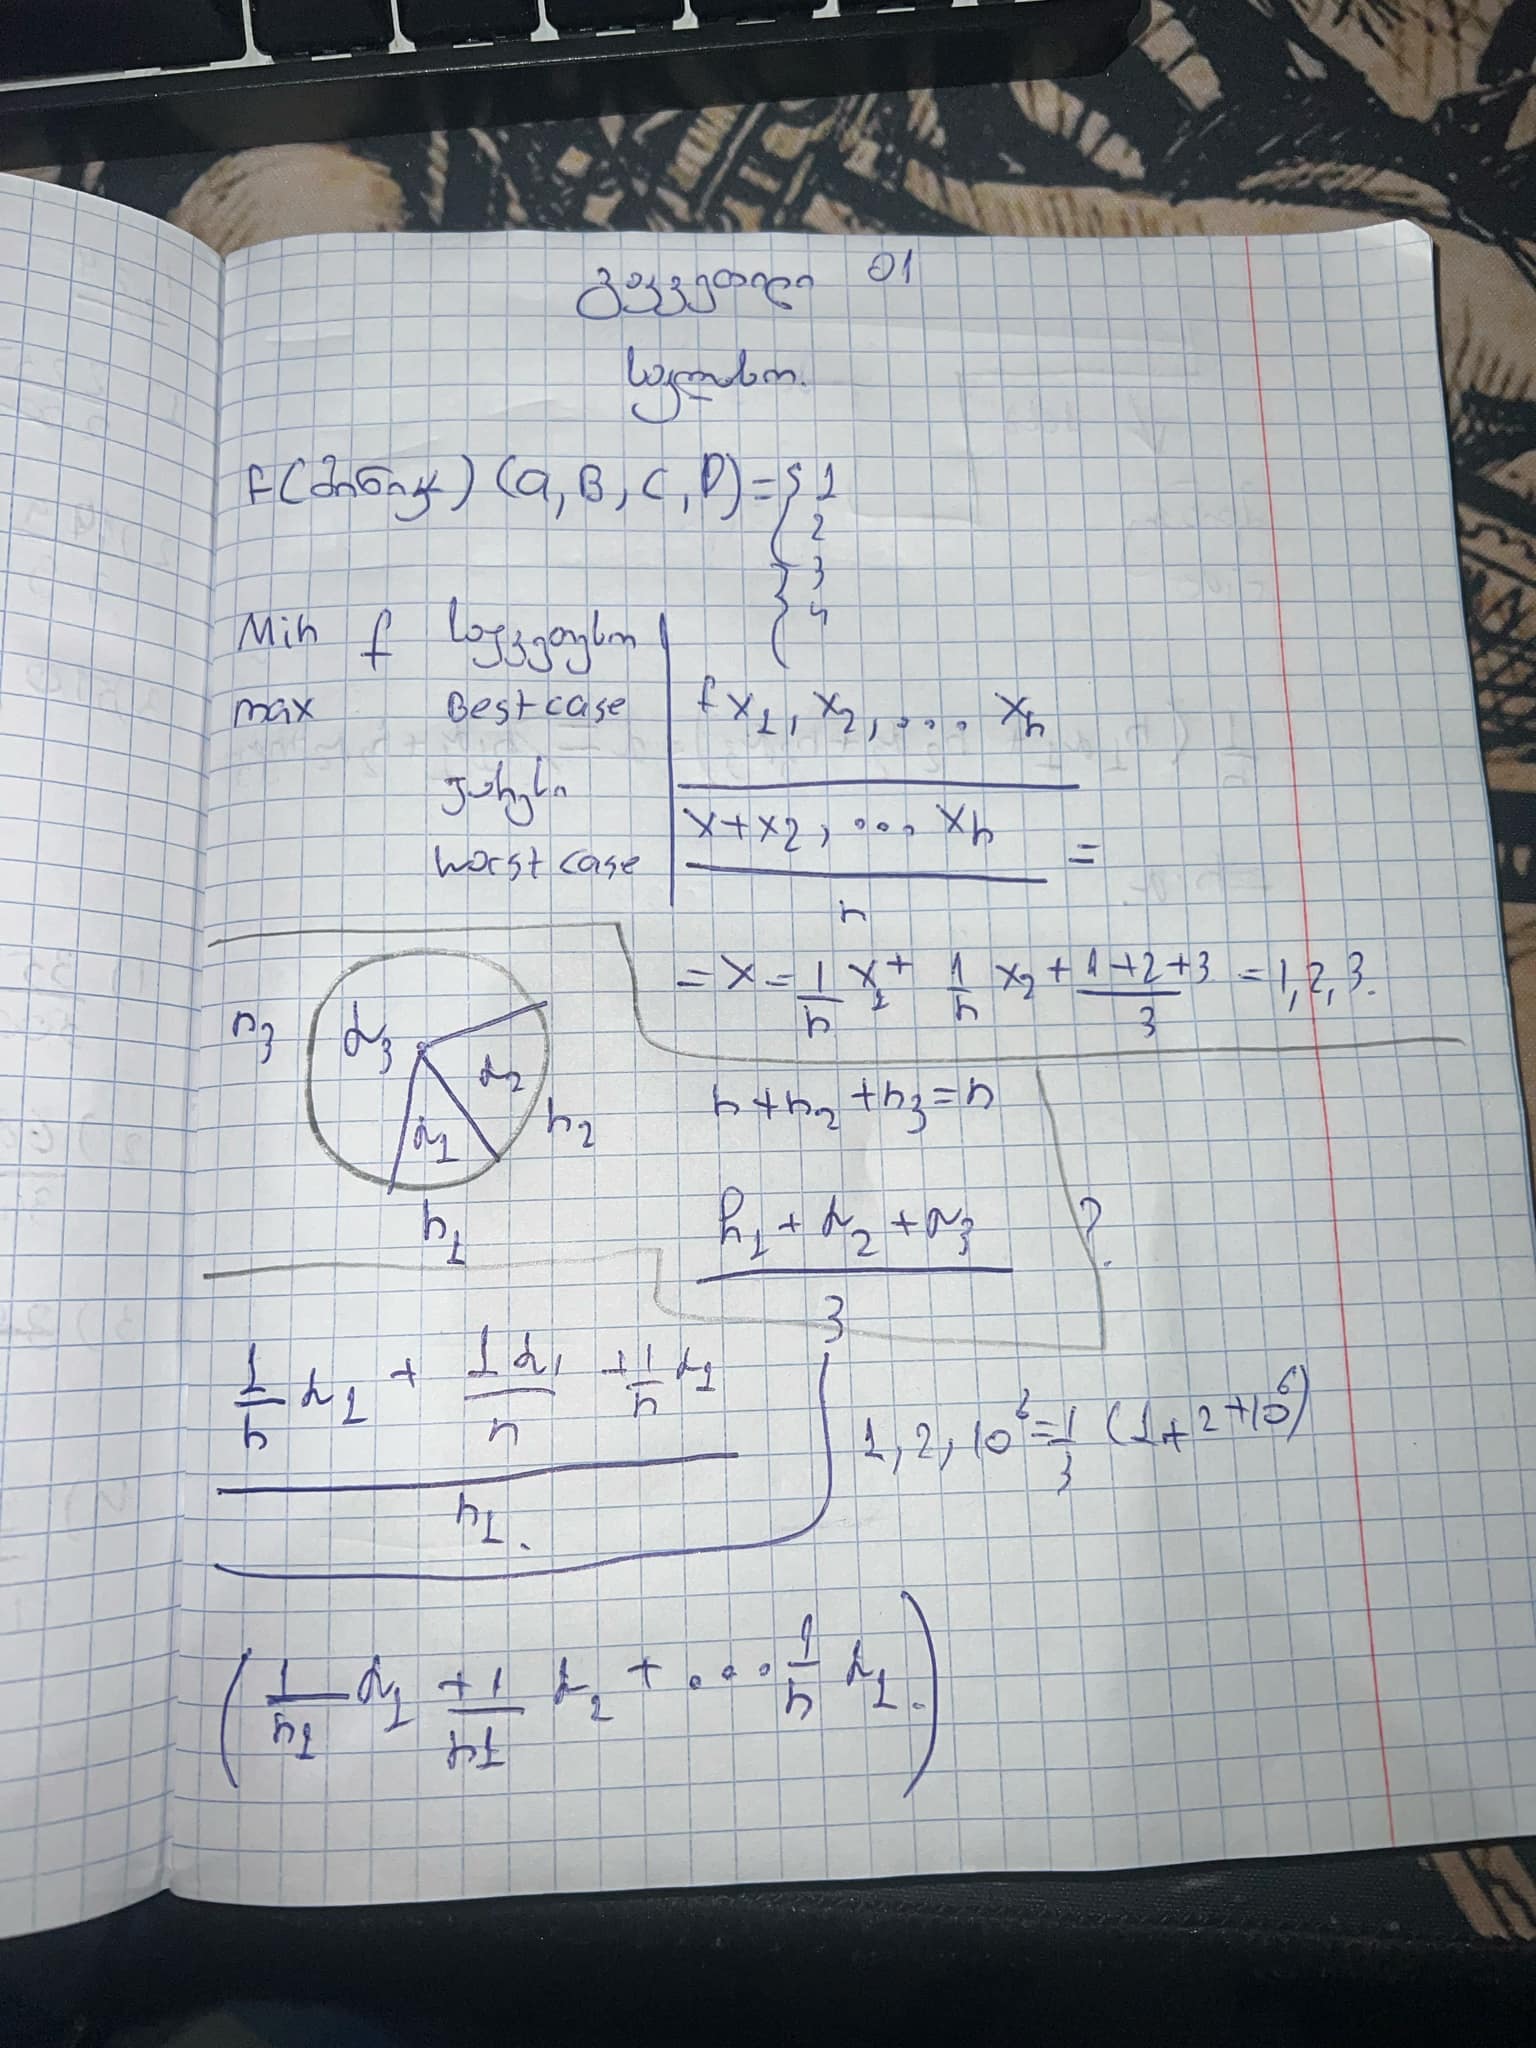 გაკვეთილი 01
f(მონიკ) (a, B, C, D) = { 1
2
3
4
Min f საუკეთესო
max Best case
უარესი
worst case
f x₁, x₂, ... xₙ
x+x₂, ... xₙ =
n
= x = 1/n x₁ + 1/n x₂ + 1+2+3/3 = 1, 2, 3.
n₃ α₃ α₂ α₁ n₂ n₁
n+n₂+n₃=n
h₁ + α₂ + α₃ ?
3
1/n α₁ + 1α₁/n + 1/n α₁
n₁.
1, 2, 10⁶ = 1/3 (1+2+10⁶)
(1/n₁ α₁ + 1/n1 α₂ + ... 1/n α₁.)